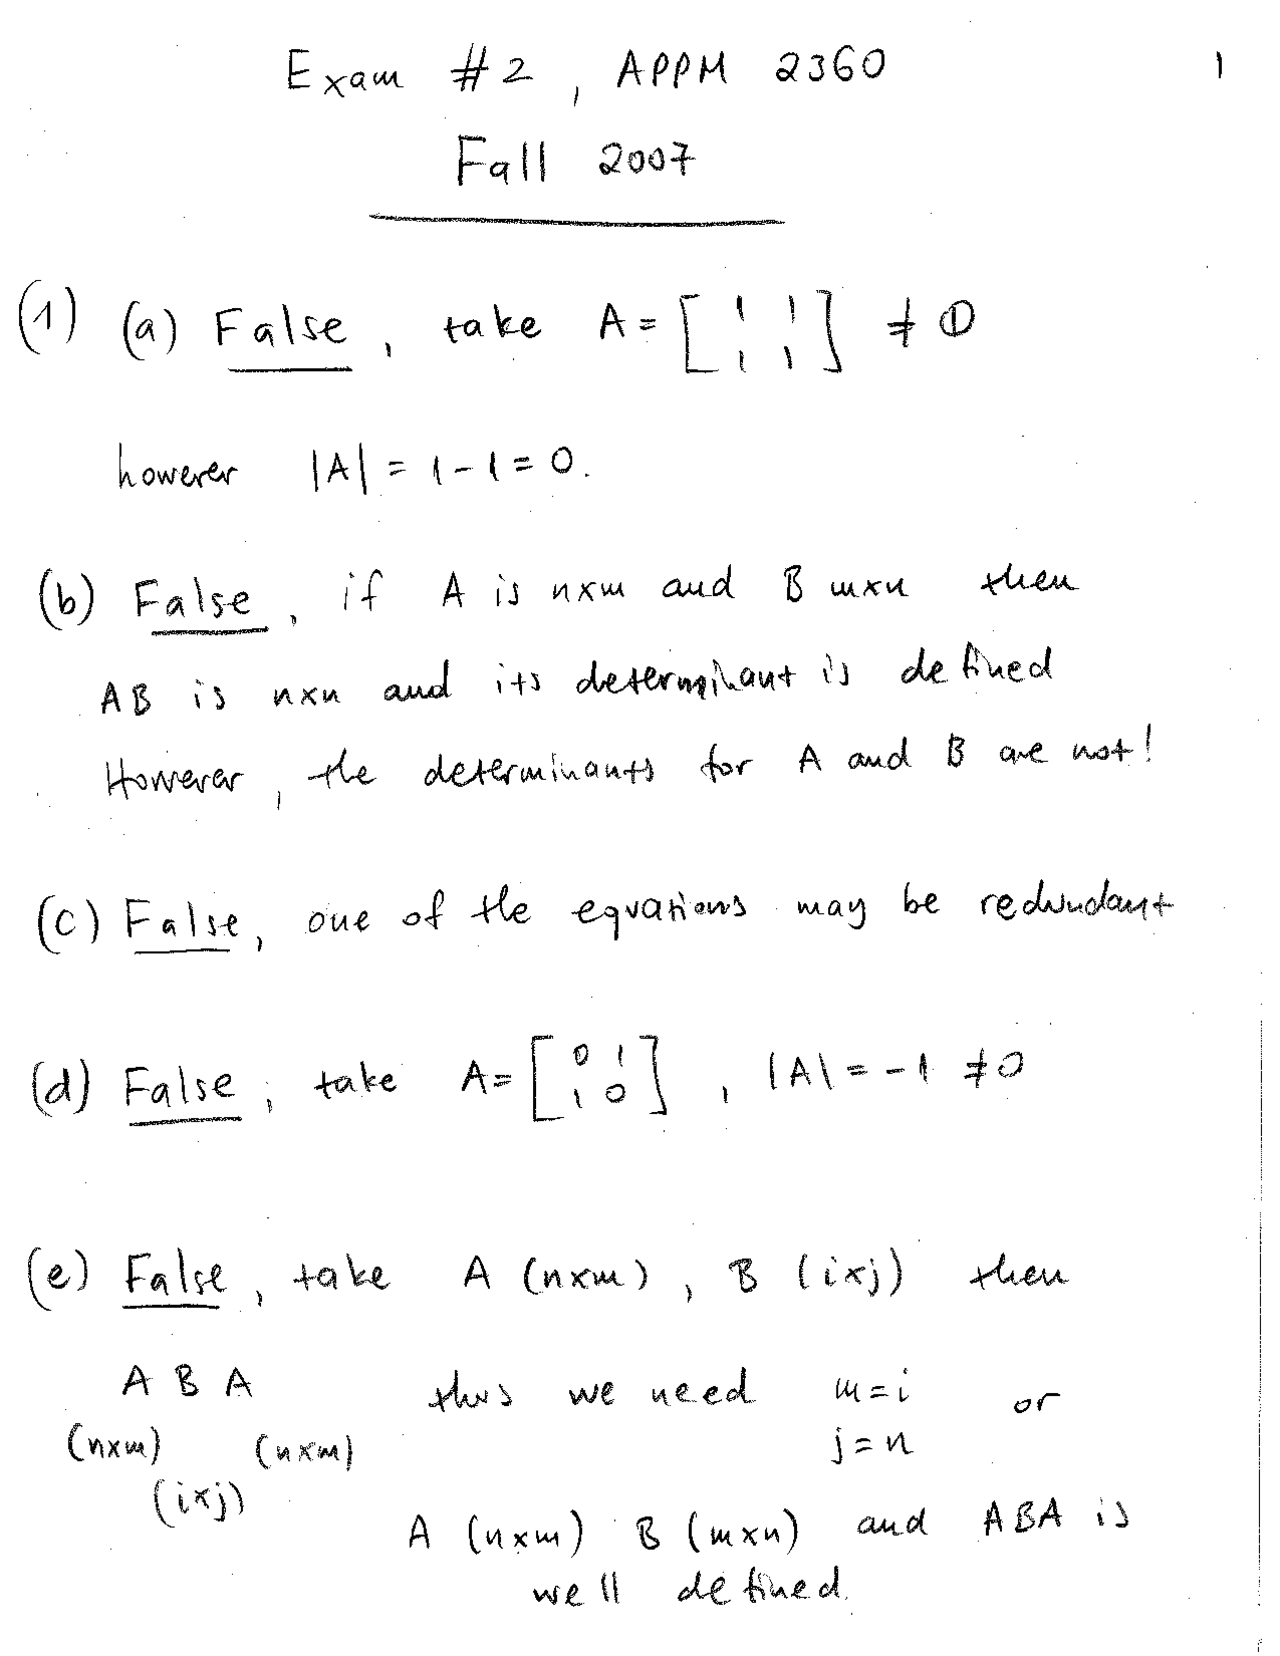 Exam #2, APPM 2360
1
Fall 2007
(1) (a) False, take A = [1 1; 1 1] ≠ 0
however |A| = 1 - 1 = 0.
(b) False, if A is nxm and B mxn then
AB is nxn and its determinant is defined
However, the determinants for A and B are not!
(c) False, one of the equations may be redundant
(d) False, take A = [0 1; 1 0], |A| = -1 ≠ 0
(e) False, take A (nxm), B (ixj) then
A B A thus we need m = i or
(nxm) (nxm) j = n
(ixj)
A (nxm) B (mxn) and ABA is
well defined.